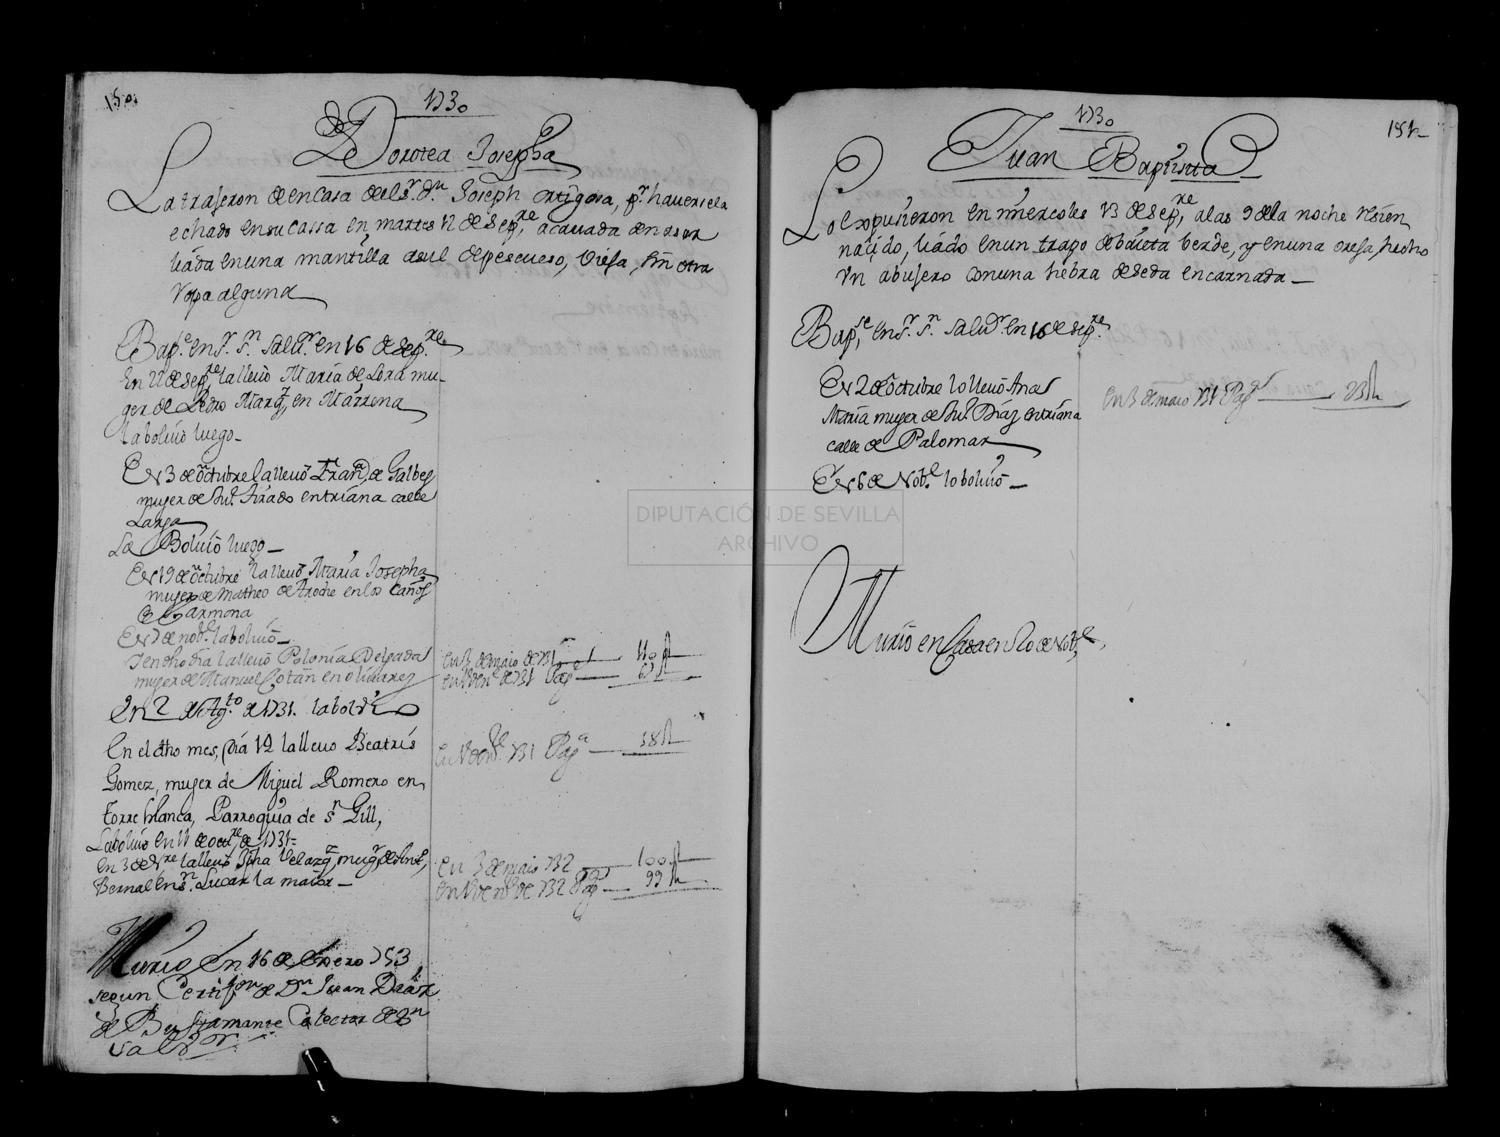 150.
1730
Dorotea Josepha
La trajeron de en casa del Sr. Dn. Joseph ortigosa, pr. haversela
echado en su cassa en martes 12 de Sepre, acavada de nazer
liada en una mantilla asul de pescueso, vieja, sin otra
ropa alguna
Bap.e en Sr. Sn. Salvr. en 16 de Sepre.
En 22 de sepre la llevó María de Lora mu-
ger de Pedro Marqz, en Marzena
la bolvió luego_
En 3 de octubre la llevó Franca de Galbez
muger de Jun. Jurado en triana calle
Larga
La Bolvió luego_
En 19 de octubre la llevó María Josepha
muger de Matheo de Aroche en los Caños
de Carmona
En 7 de nobe. la bolvió_
Dicho día la llevó Polonia Delgada
muger de Manuel Cotan en olivarez
en 3 de maio de 731
en 1 de nre de 731 Paga
En 2 de Agto de 1731. la bolvió
En el dho mes, día 12 la llevo Beatris
Gomez, muger de Miguel Romero en
torre blanca, Parroquia de sn Gill,
731 Paga 38 R
La bolvió en 11 de octre de 1731=
en 3 de nre la llevó Jpha Velazqz, mugr. de Ant,
Bernal en Sn. Lucar la maior_
en 3 de maio 732 100 R
en 1 de nre de 732 Paga 99 R
Murio En 16 de Enero 753
segun Certifon de Dn Juan Diaz
de Bustamante Colector de Sn
Salvor
1730
181
Juan Baptista
Lo expusieron en miercoles 13 de Sepre, a las 9 de la noche resien
nacido, liado en un trazo de baieta berde, y en una oreja, hecho
un abujero con una hebra de seda encarnada_
Bapse, en Sr. Sn Salvr en 16 de sepre
En 2 de octubre lo llevó Ana
María muger de Jun. Díaz en triana
calle de Palomar
en 3 de maio 731 Paga 23 R
En 6 de Nobe. lo bolvió_
Murió en Casa en 20 de Nobe,
DIPUTACIÓN DE SEVILLA
ARCHIVO